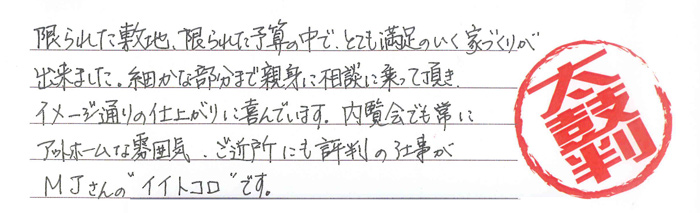 限られた敷地、限られた予算の中で、とても満足のいく家づくりが
出来ました。細かな部分まで親身に相談に乗って頂き、
イメージ通りの仕上がりに喜んでいます。内覧会でも常に
アットホームな雰囲気、ご近所にも評判の仕事が
MJさんの"イイトコロ"です。
太鼓判